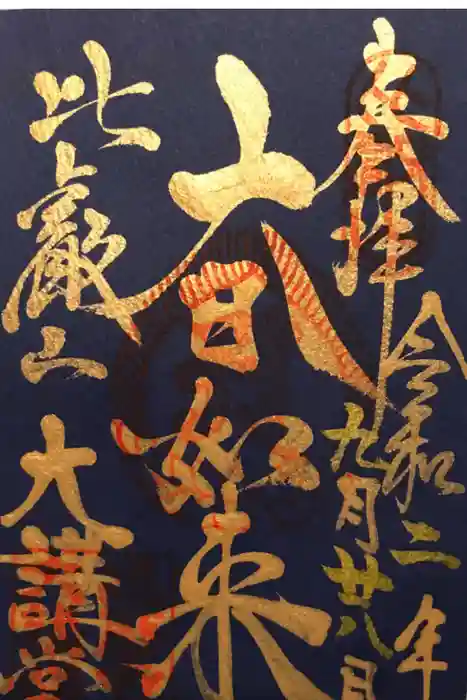 奉拝
令和二年
九月廿八日
大日如来
比叡山
大講堂